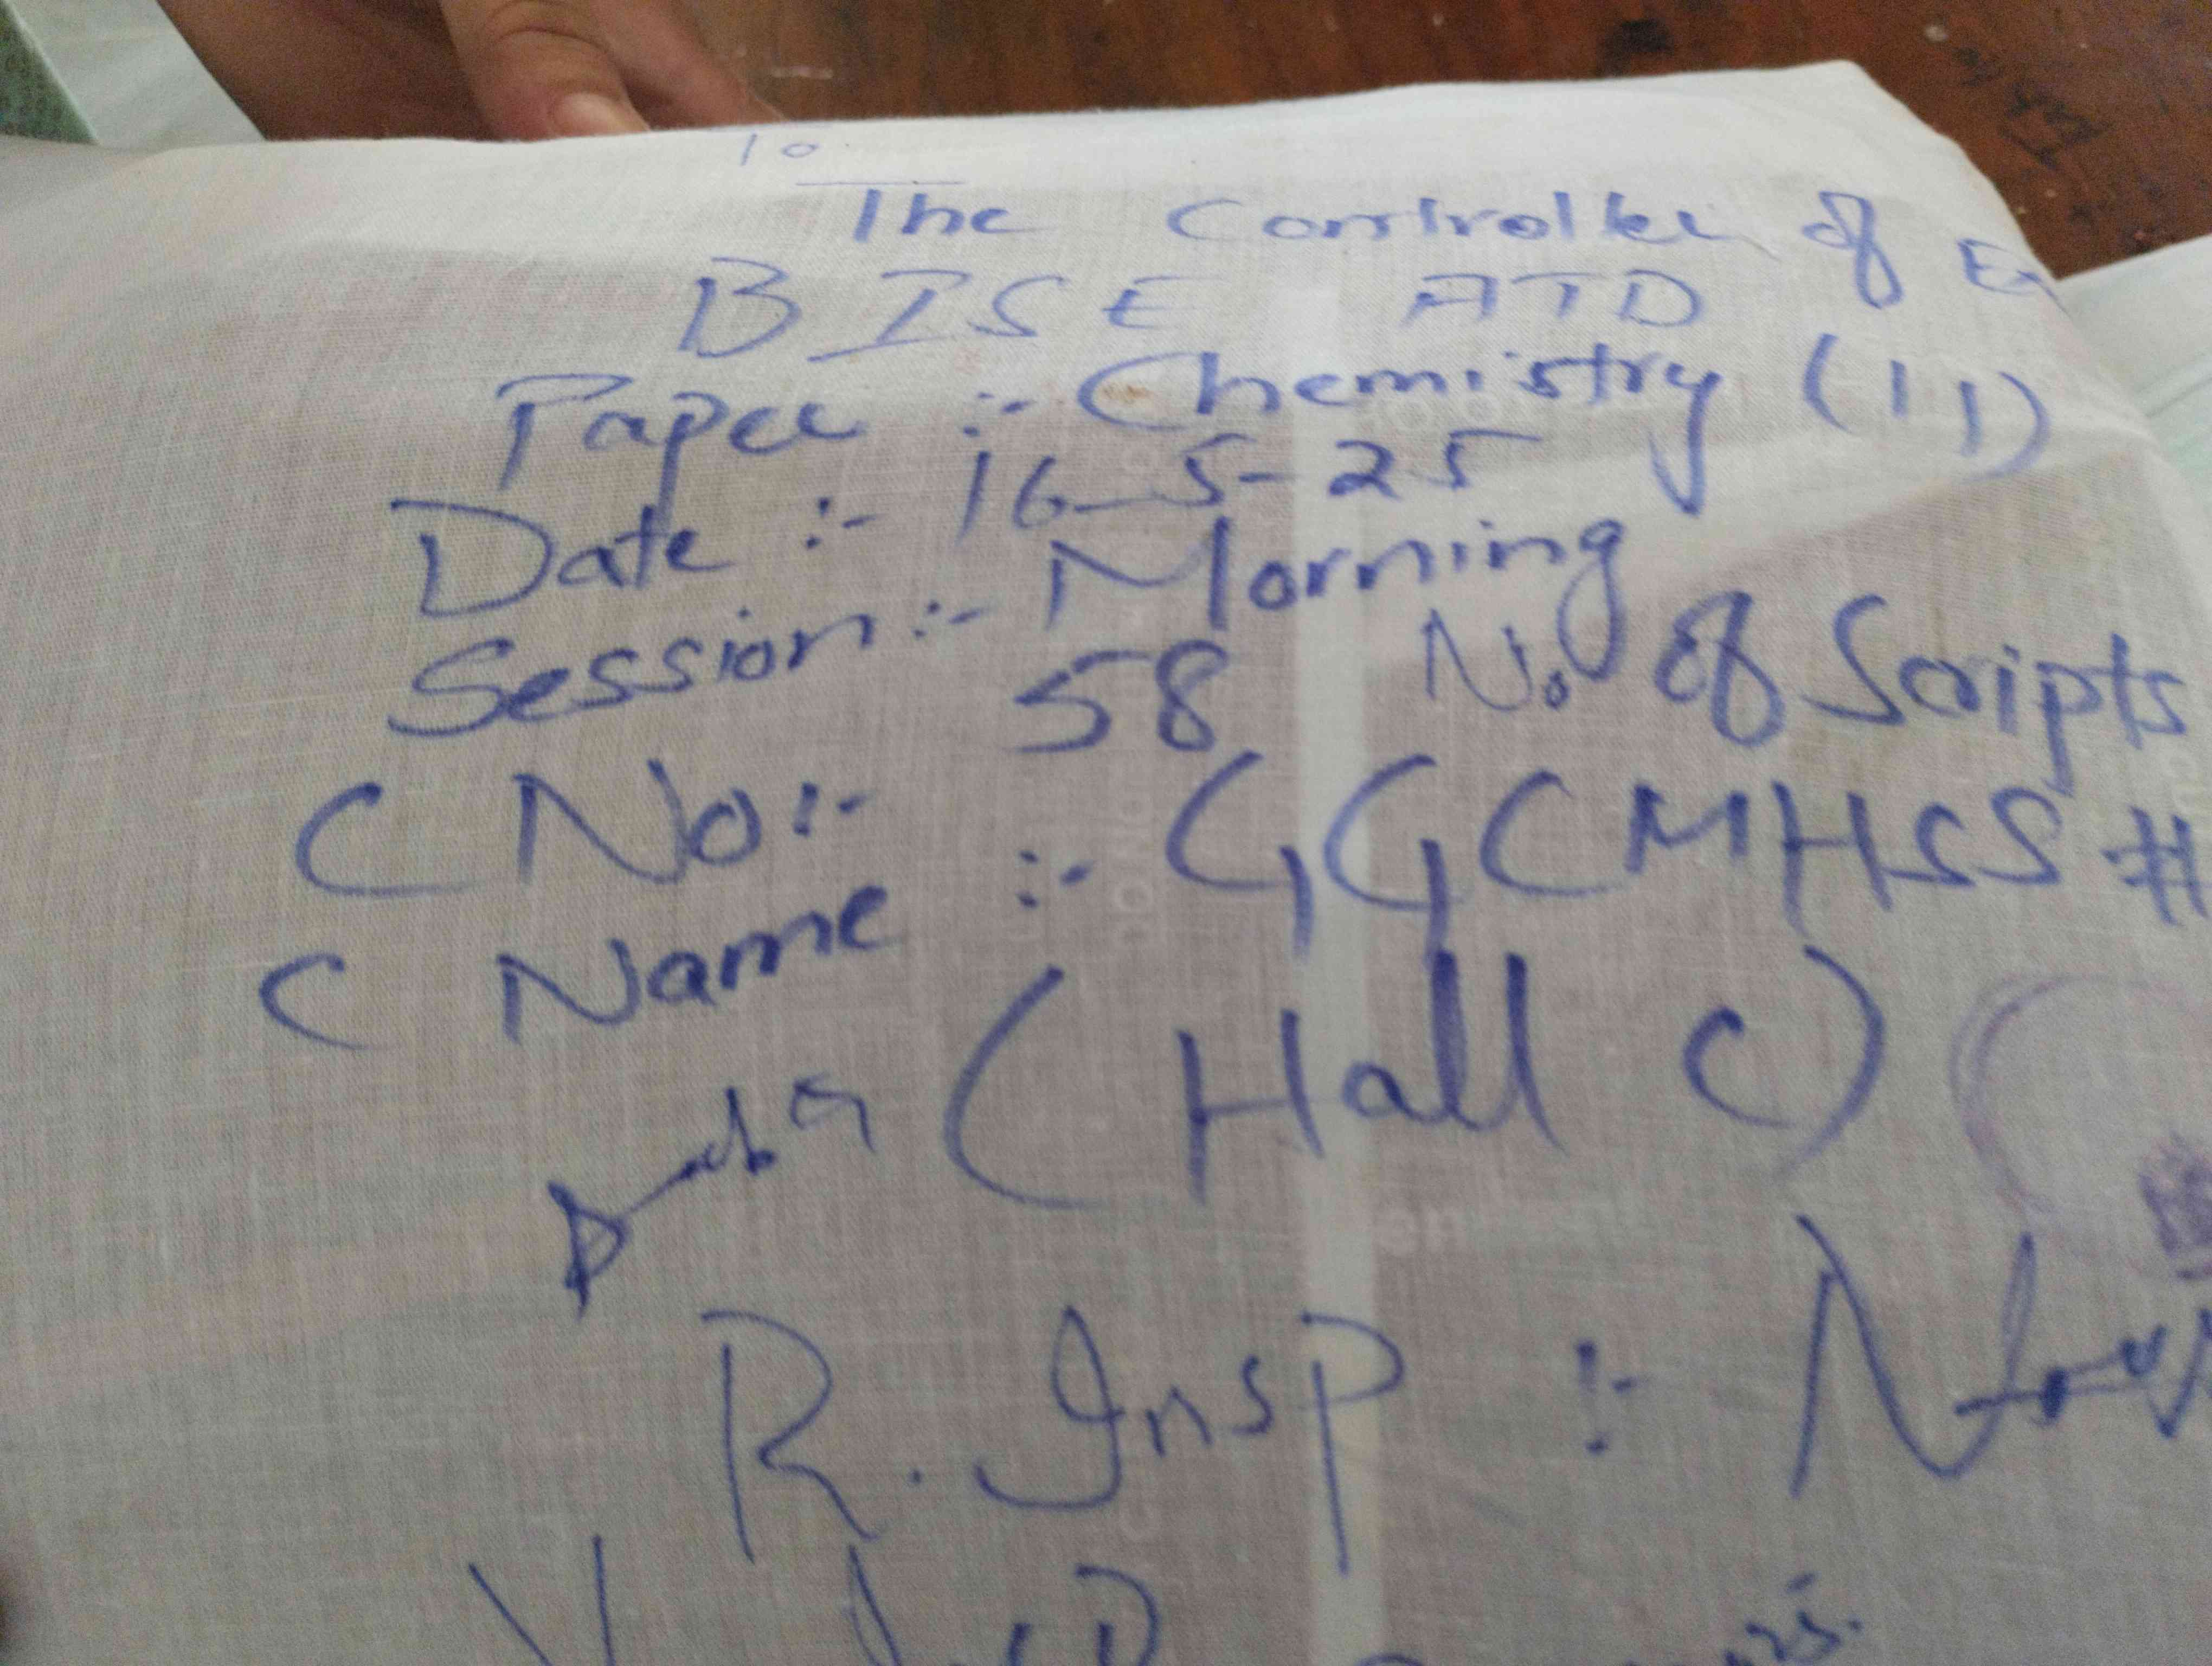 To
The Controller of
BISE ATD
Paper :- Chemistry (11)
Date :- 16-5-25
Session :- Morning
58 No. of Scripts
C No :-
C Name :- GGCMHSS #
(Hall C)
R. Insp :-